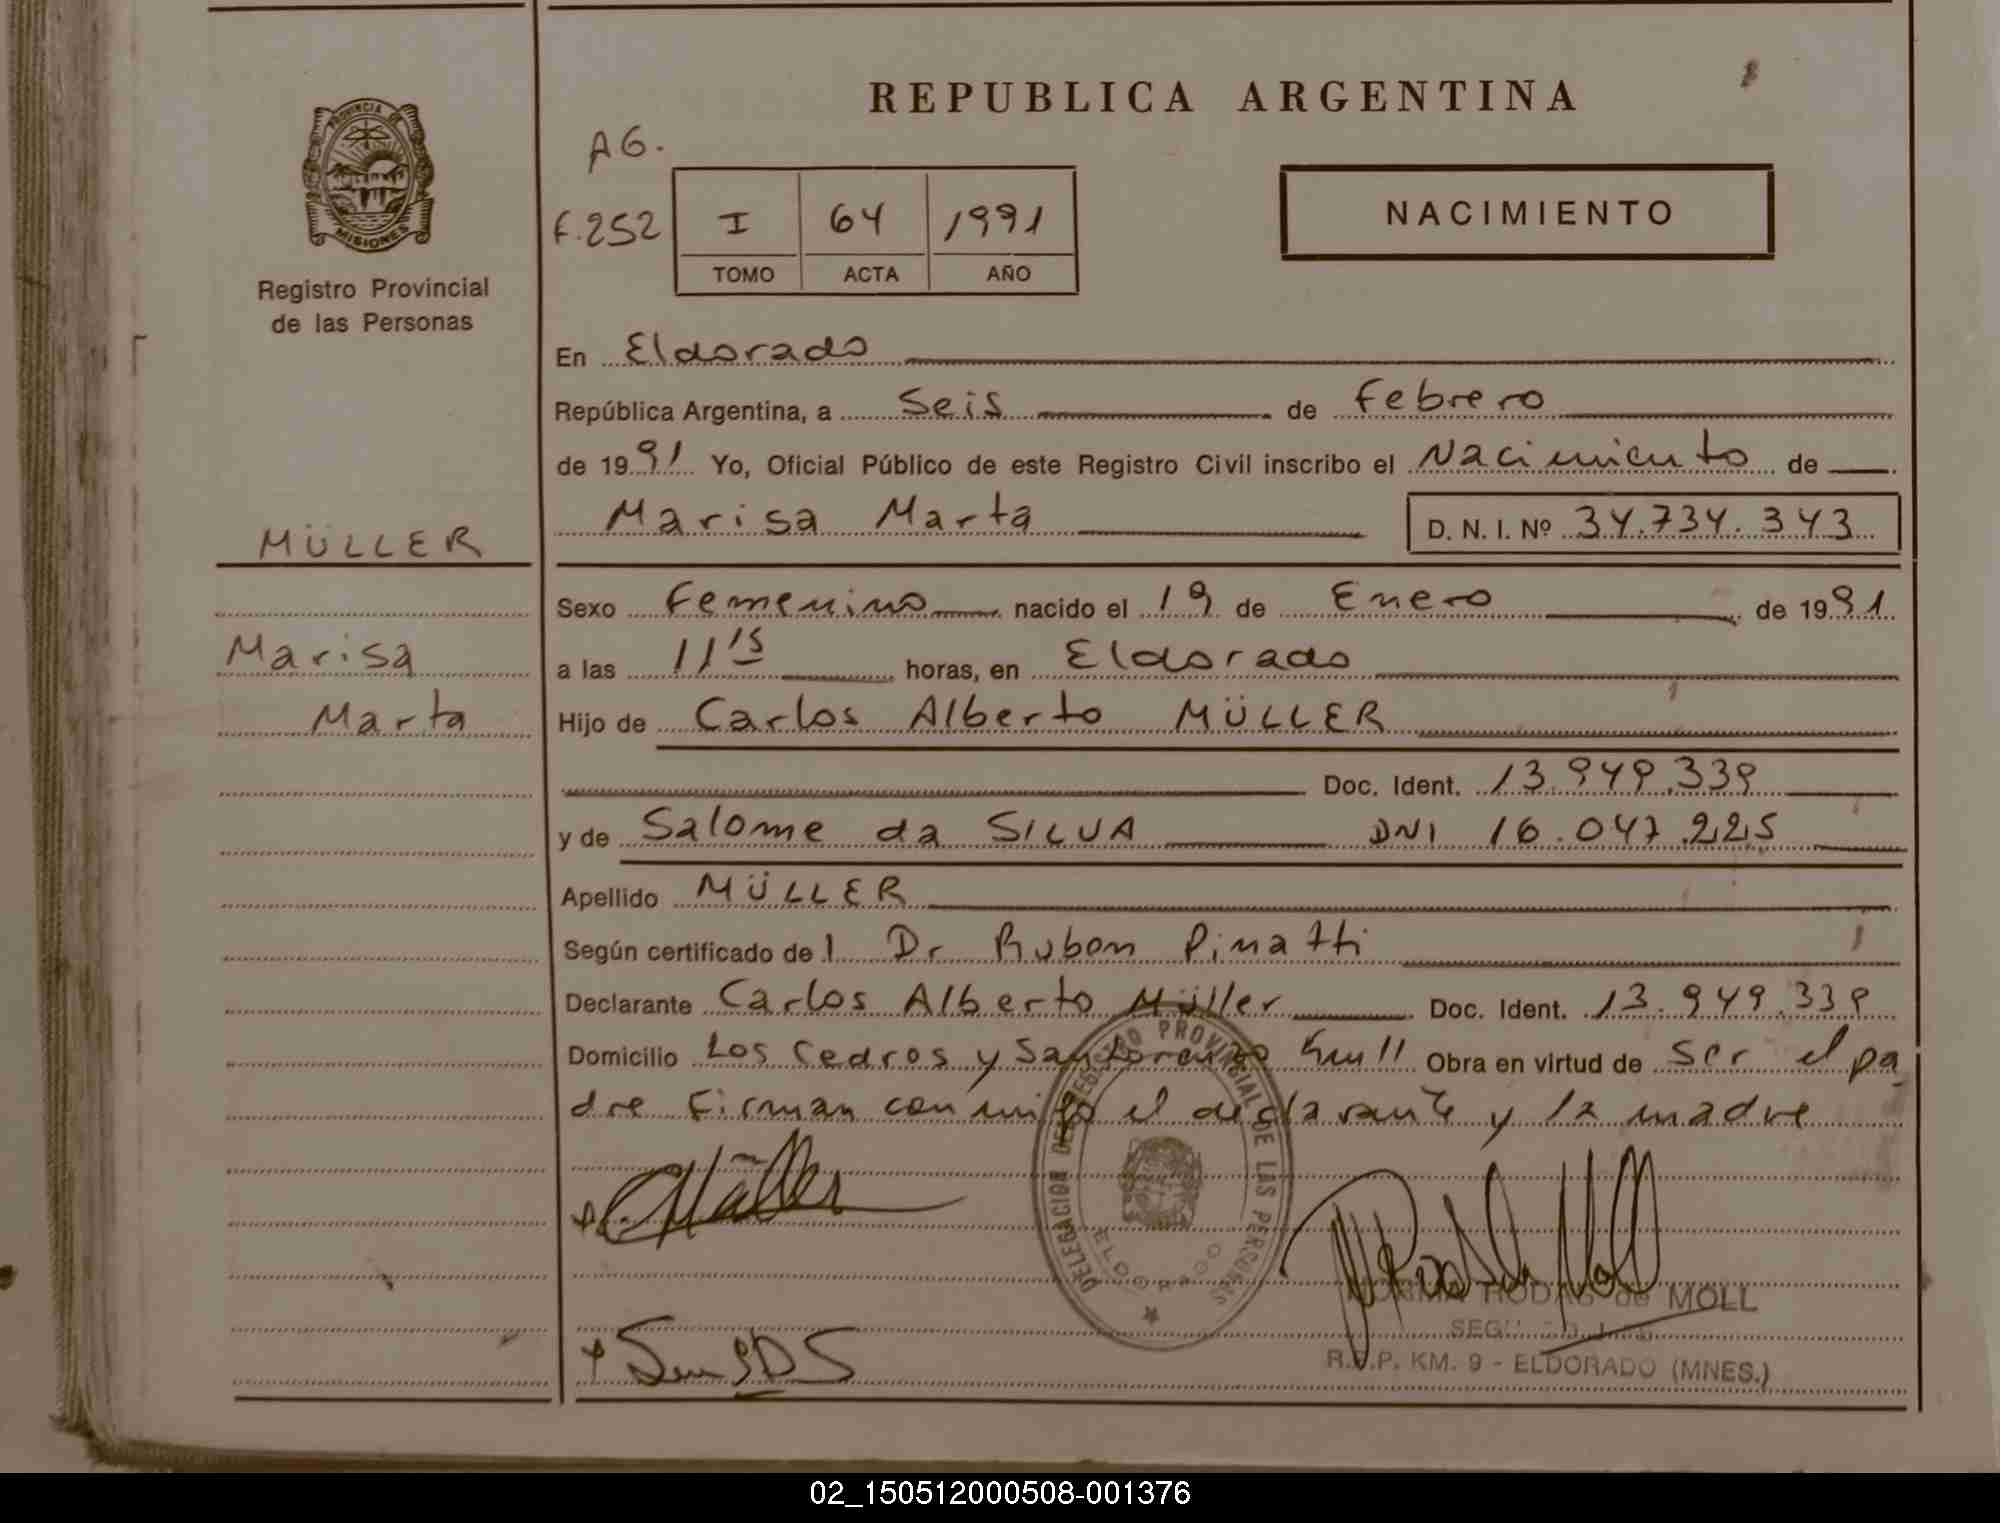 REPUBLICA ARGENTINA
PROVINCIA DE
MISIONES
Registro Provincial
de las Personas
AG.
F.252
I 64 1991
TOMO ACTA AÑO
NACIMIENTO
En Eldorado
República Argentina, a Seis de Febrero
de 1991 Yo, Oficial Público de este Registro Civil inscribo el Nacimiento de
Marisa Marta D. N. I. Nº 34.734.343
MÜLLER
Marisa
Marta
Sexo Femenino nacido el 19 de Enero de 1991
a las 11 15 horas, en Eldorado
Hijo de Carlos Alberto MÜLLER
Doc. Ident. 13.949.339
y de Salome da SILVA DNI 16.047.225
Apellido MÜLLER
Según certificado del Dr Ruben Pinatti
Declarante Carlos Alberto Müller Doc. Ident. 13.949.339
Domicilio Los Cedros y San Lorenzo Km 11 Obra en virtud de Ser el pa
dre Firman conmigo el declarante y la madre
DELEGACION DEL REGISTRO PROVINCIAL DE LAS PERSONAS
ELDORADO
Müller
NORMA RODAS de MOLL
R.P.P. KM. 9 - ELDORADO (MNES.)
02_150512000508-001376